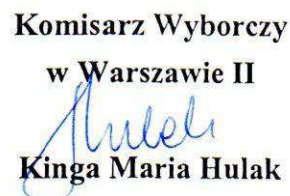 Komisarz Wyborczy
w Warszawie II
Hulak
Kinga Maria Hulak